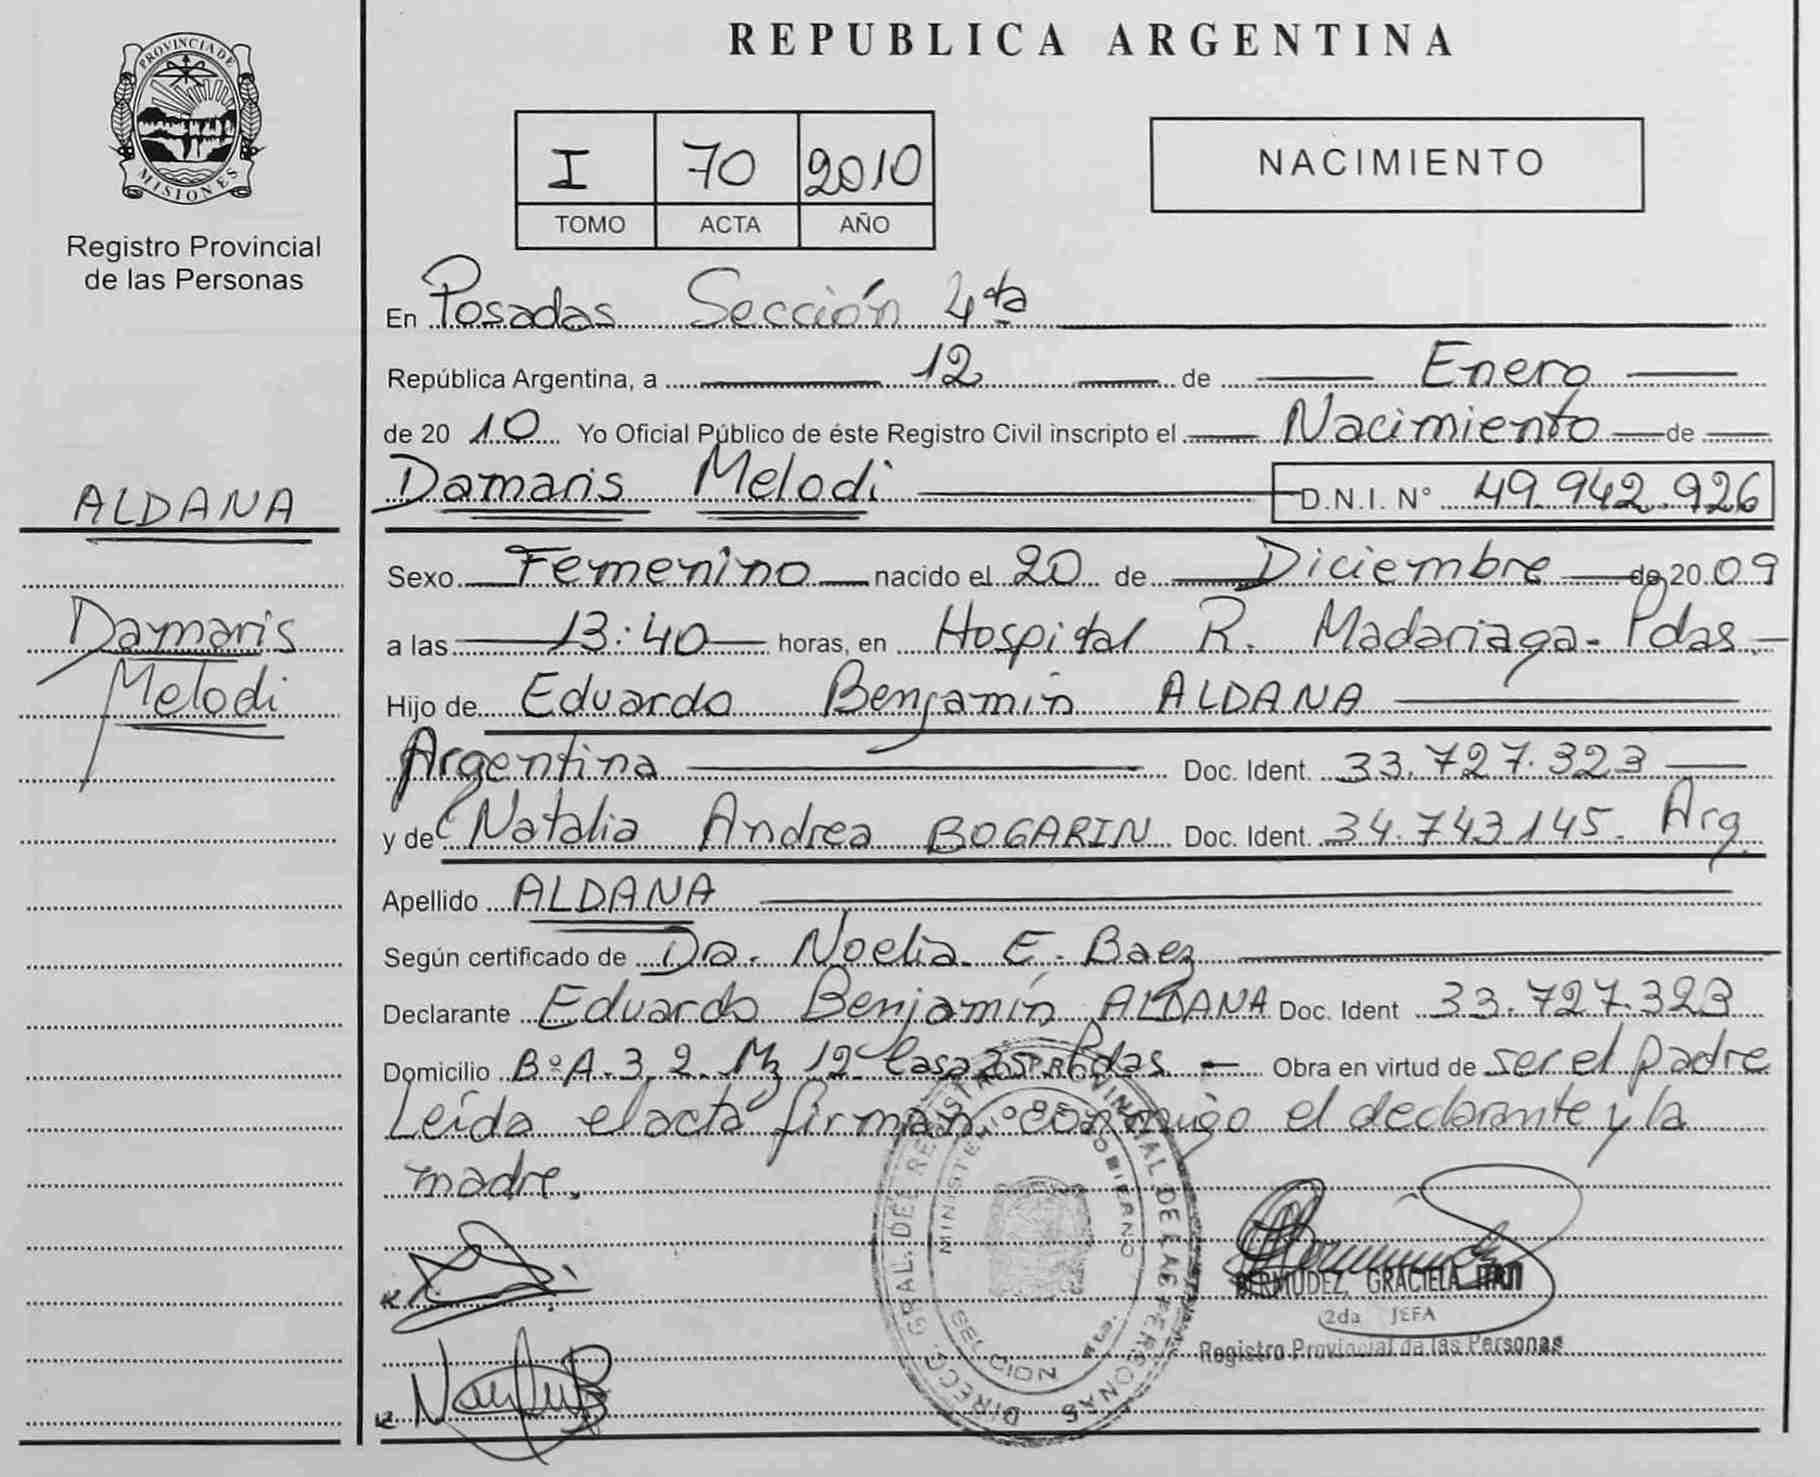 REPUBLICA ARGENTINA
PROVINCIA DE
MISIONES
Registro Provincial
de las Personas
I 70 2010
TOMO ACTA AÑO
NACIMIENTO
En Posadas Sección 4ta
República Argentina, a 12 de Enero
de 20 10 Yo Oficial Público de éste Registro Civil inscripto el Nacimiento de
Damaris Melodi D.N.I. N° 49.942.926
ALDANA
Damaris
Melodi
Sexo Femenino nacido el 20 de Diciembre de 20 09
a las 13:40 horas, en Hospital R. Madariaga - Pdas.-
Hijo de Eduardo Benjamín ALDANA
Argentina Doc. Ident. 33.727.323
y de Natalia Andrea BOGARIN Doc. Ident. 34.743.145. Arg.
Apellido ALDANA
Según certificado de Dra. Noelia E. Baez
Declarante Eduardo Benjamín ALDANA Doc. Ident 33.727.323
Domicilio B°A-3.2. Mz 12 Casa 25 Pdas - Obra en virtud de ser el padre
Leída el acta firman conmigo el declarante y la
madre.
DIRECC. GRAL. DEL REGISTRO PROVINCIAL DE LAS PERSONAS
MINISTERIO DE GOBIERNO
SECCION 4ta.
BERMUDEZ, GRACIELA
2da JEFA
Registro Provincial de las Personas